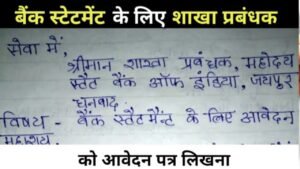 बैंक स्टेटमेंट के लिए शाखा प्रबंधक
सेवा में,
श्रीमान शाखा प्रबंधक, महोदय
स्टैट बैंक ऑफ इंडिया, जयपुर
धनबाद
विषय - बैंक स्टैटमैन्ट के लिए आवेदन
महाशय,
को आवेदन पत्र लिखना